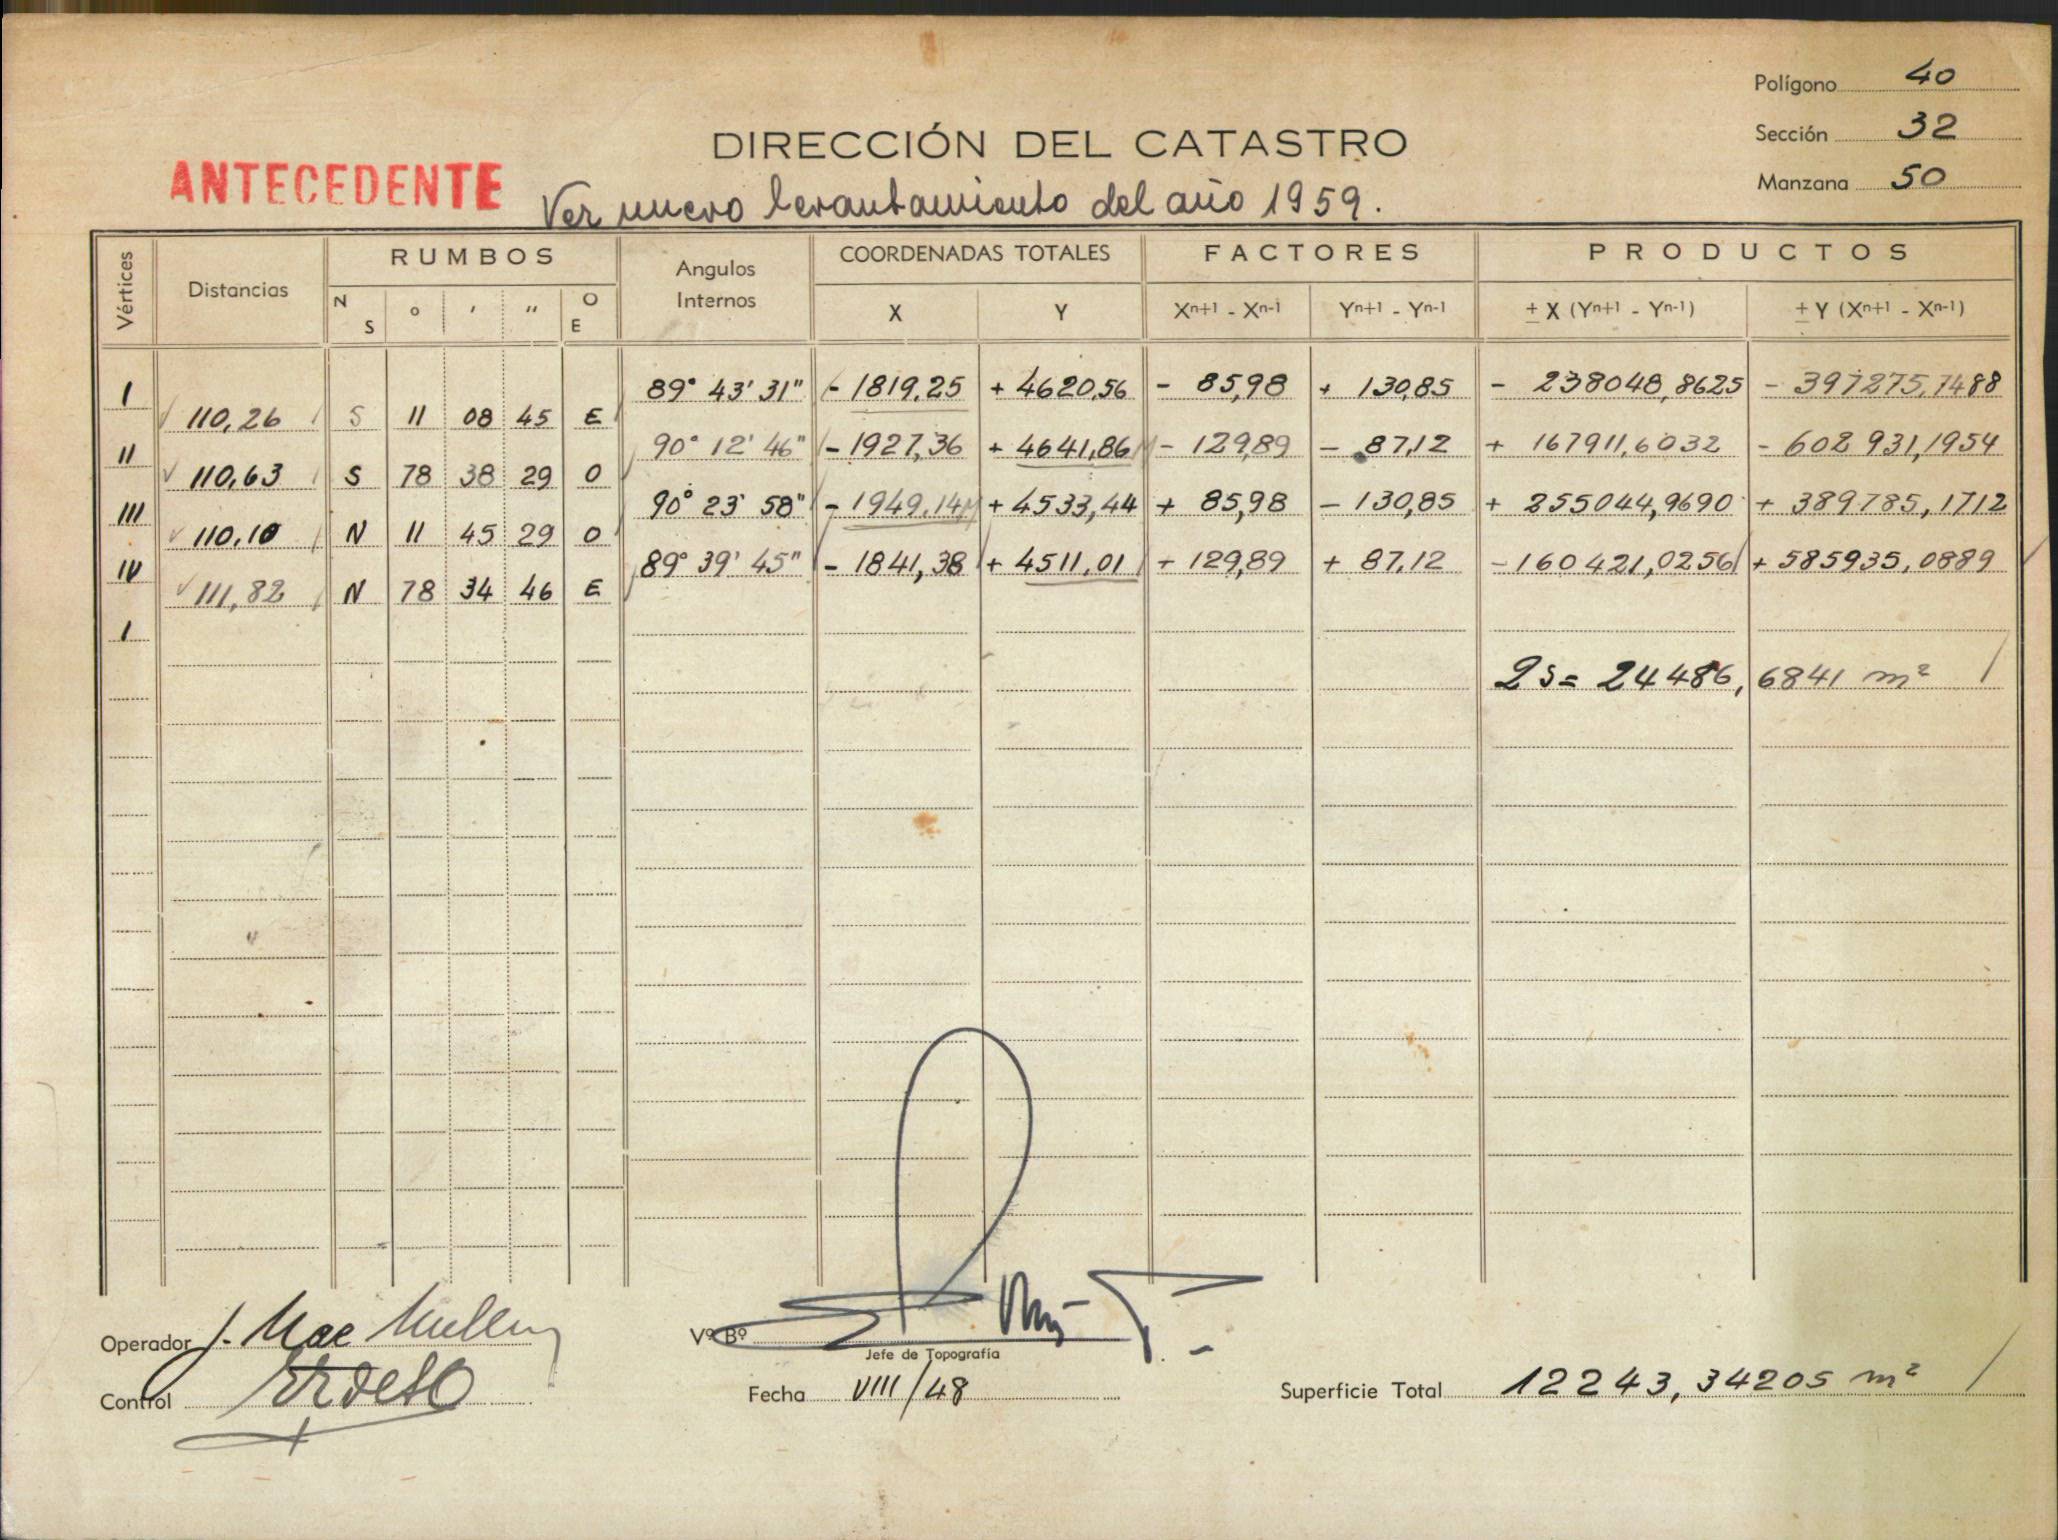 Polígono 40
DIRECCIÓN DEL CATASTRO
Sección 32
ANTECEDENTE
Manzana 50
Ver nuevo levantamiento del año 1959.
Vértices Distancias RUMBOS Angulos Internos COORDENADAS TOTALES FACTORES PRODUCTOS
N S ° ' " O E X Y Xn+1 - Xn-1 Yn+1 - Yn-1 ± X (Yn+1 - Yn-1) ± Y (Xn+1 - Xn-1)
I 89° 43' 31" - 1819,25 + 4620,56 - 85,98 + 130,85 - 238048,8625 - 397275,7488
110,26 S 11 08 45 E
II 90° 12' 46" - 1927,36 + 4641,86 - 129,89 - 87,12 + 167911,6032 - 602931,1954
110,63 S 78 38 29 O
III 90° 23' 58" - 1949,14 + 4533,44 + 85,98 - 130,85 + 255044,9690 + 389785,1712
110,10 N 11 45 29 O
IV 89° 39' 45" - 1841,38 + 4511,01 + 129,89 + 87,12 - 160421,0256 + 585935,0889
111,82 N 78 34 46 E
I
2S= 24486,6841 m²
Operador J. Mac
Vº Bº
Jefe de Topografía
Control
Fecha VIII/48
Superficie Total 12243,34205 m²